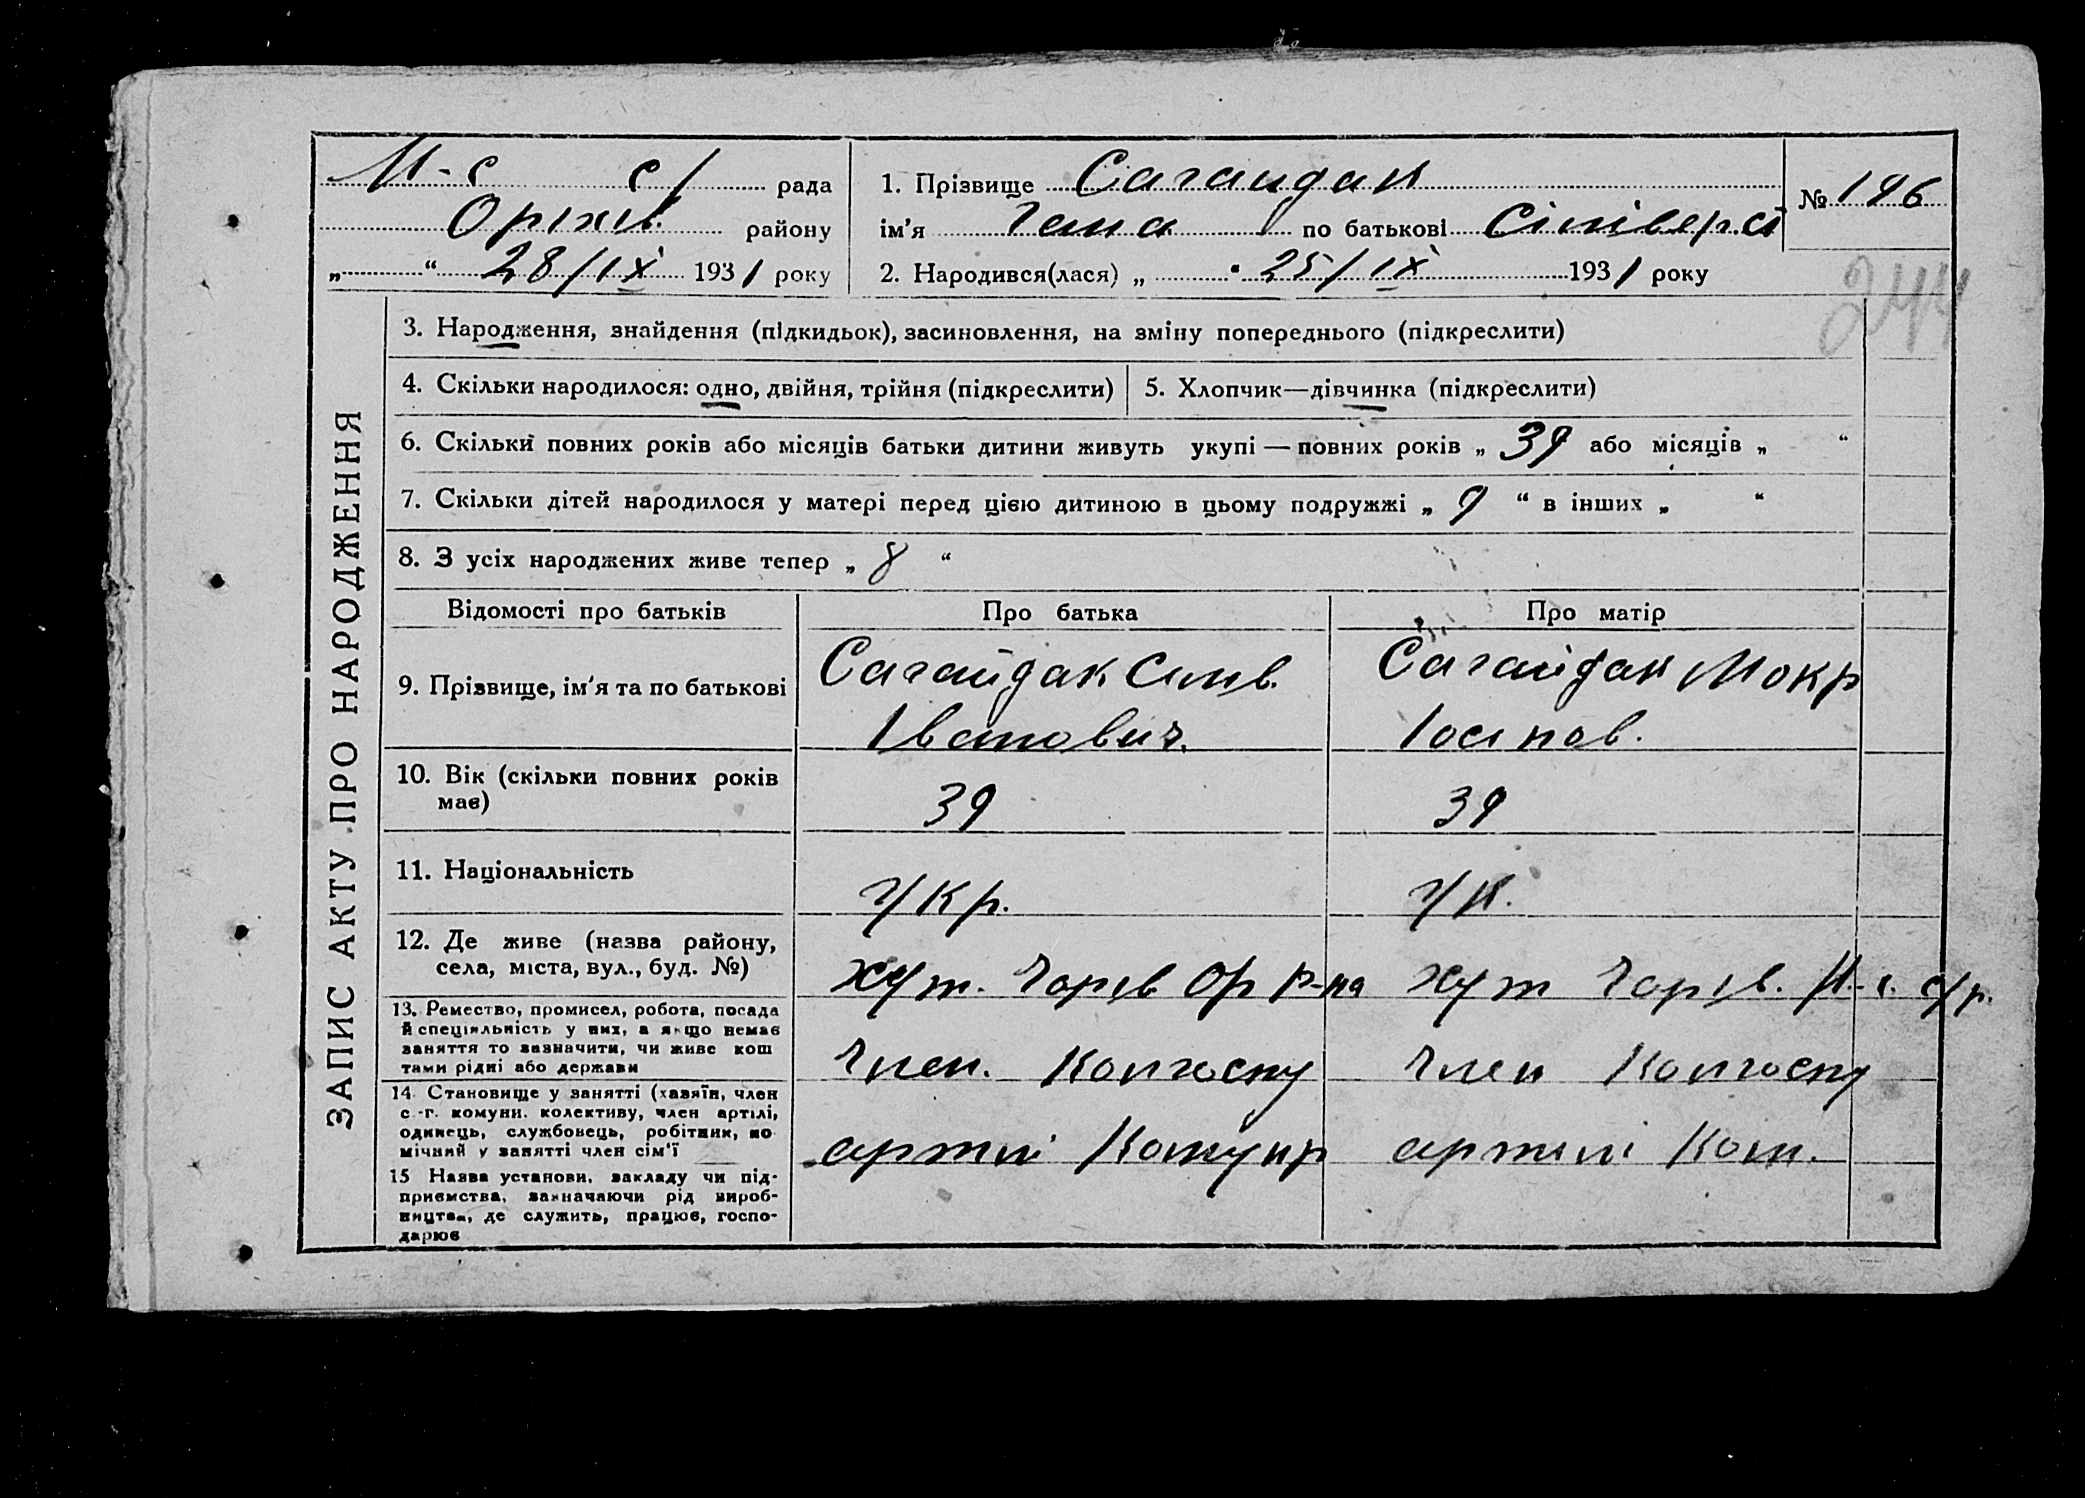 М-с с/ рада
Оріхів. району
„ “ 28/IX 1931 року
1. Прізвище Сагаидак
ім'я Гана по батькові Сілівер.
2. Народився(лася) „ “ 25/IX 1931 року
№ 196
244
ЗАПИС АКТУ ПРО НАРОДЖЕННЯ
3. Народження, знайдення (підкидьок), засиновлення, на зміну попереднього (підкреслити)
4. Скільки народилося: одно, двійня, трійня (підкреслити)
5. Хлопчик—дівчинка (підкреслити)
6. Скільки повних років або місяців батьки дитини живуть укупі — повних років „ 39 або місяців „ “
7. Скільки дітей народилося у матері перед цією дитиною в цьому подружжі „ 9 “ в інших „ “
8. З усіх народжених живе тепер „ 8 “
Відомості про батьків Про батька Про матір
9. Прізвище, ім'я та по батькові
Сагайдак Силив.
Іванович.
Сагайдак Мокр
Іосипов.
10. Вік (скільки повних років
має)
39
39
11. Національність
Укр.
Ук.
12. Де живе (назва району,
села, міста, вул., буд. №)
хут. Чарів Ор р-на
хут Чарів. М-с. с/р.
13. Ремество, промисел, робота, посада
й спеціяльність у них, а якщо немає
заняття то зазначити, чи живе кош
тами рідні або держави
Член. Колгоспу
Член Колгоспу
14. Становище у занятті (хазяїн, член
с.-г. комуни, колективу, член артілі,
одинець, службовець, робітник, по
мічний у занятті член сім'ї
артілі Комунр
артілі Ком.
15 Назва установи, закладу чи під-
приємства, зазначаючи рід вироб-
ництва, де служить, працює, госпо-
дарює